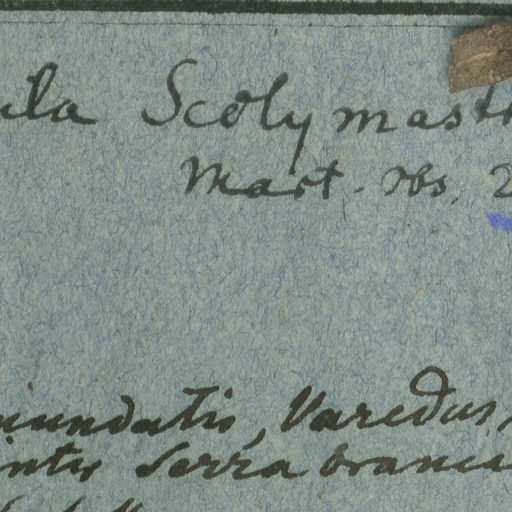 ula Scolymastr
Mart. Obs. 2
inundatis, Varedas,
inter Serra branca